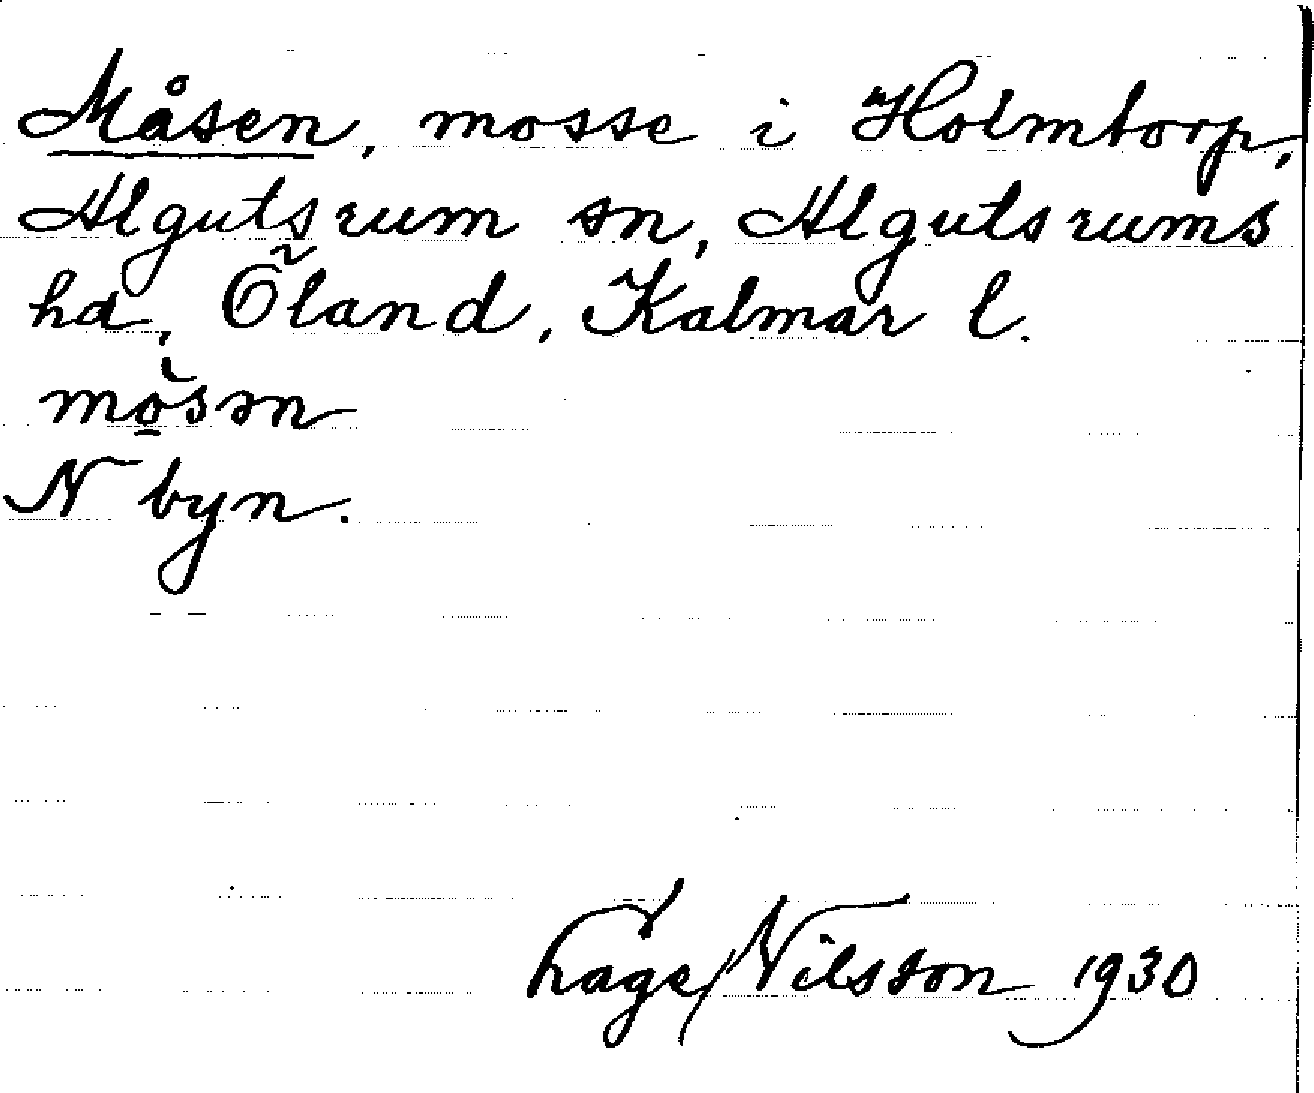 Måsen, mosse i Holmtorp,
Algutsrum sn, Algutsrums
hd, Öland, Kalmar l.
mò̱sən
N byn.
Tage Nilsson 1930